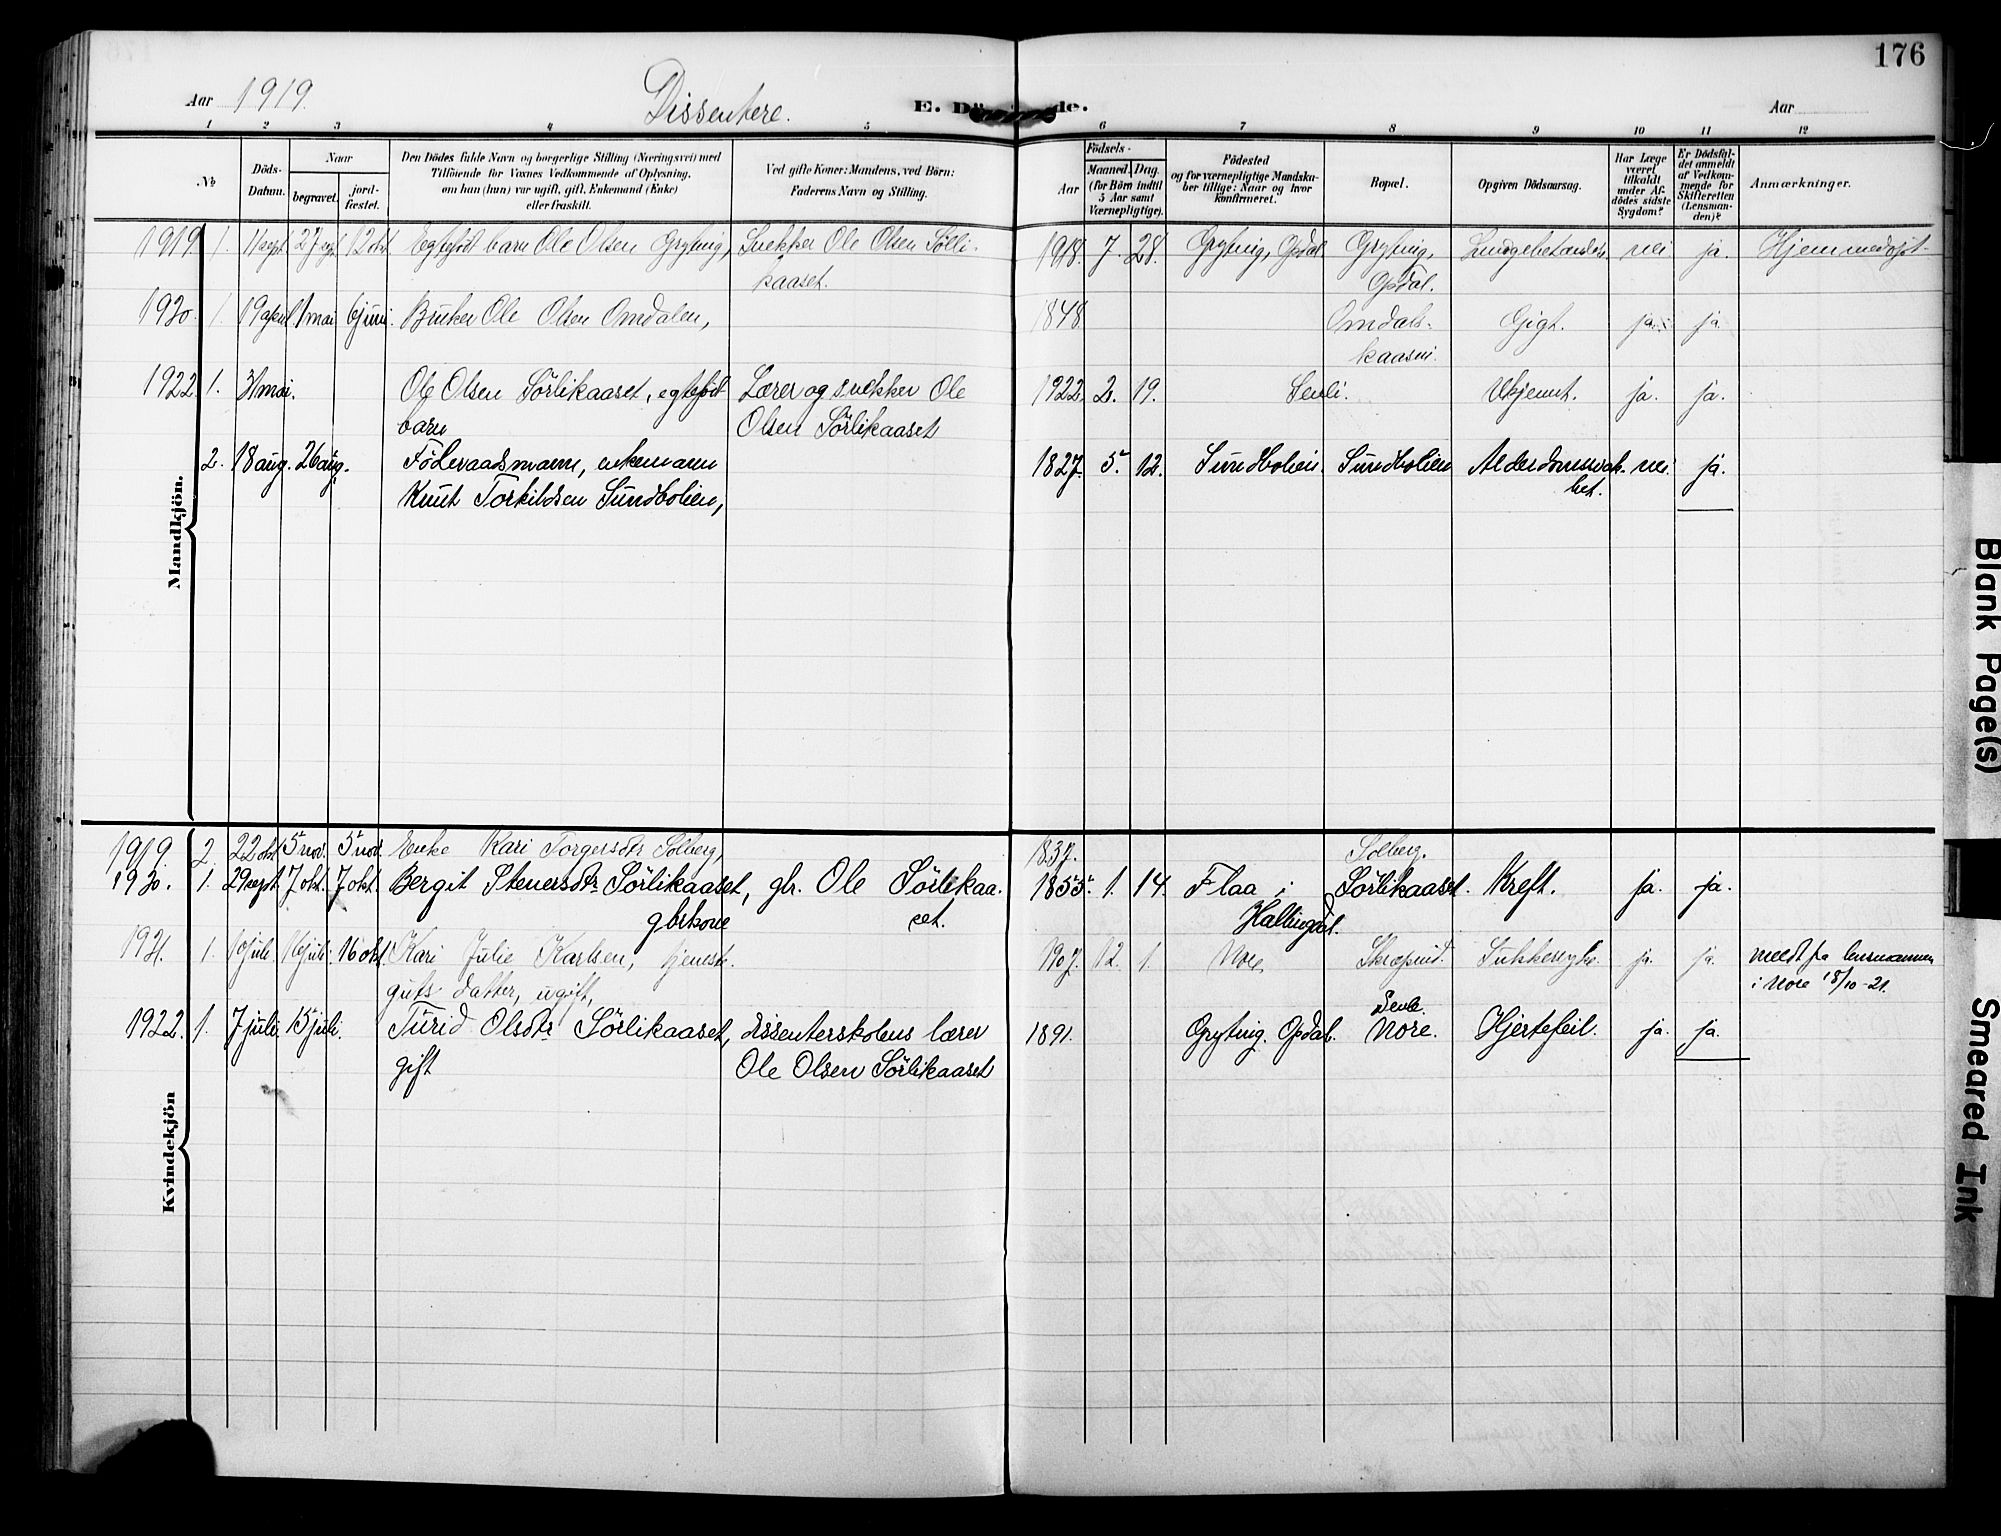 176
Aar 1919. Dissentere. E. Dö de. Aar
1 2 3 4 5 6 7 8 9 10 11 12
No Döds-Datum. Naar begravet. jord-fæstet. Den Dödes fulde Navn og borgerlige Stilling (Næringsvei) med Tilföiende for Voxnes Vedkommende af Oplysning, om han (hun) var ugift, gift, Enkemand (Enke) eller fraskilt. Ved gifte Koner: Mandens, ved Börn: Faderens Navn og Stilling. Aar Födsels- Maaned. Dag. (for Börn indtil 5 Aar samt Værnepligtige). Födested og for værnepligtige Mandskaber tillige: Naar og hvor konfirmeret. Bopæl. Opgiven Dödsaarsag. Har Læge været tilkaldt under Afdödes sidste Sygdom? Er Dödsfaldet anmeldt af Vedkommende for Skifteretten (Lensmanden)? Anmærkninger.
Mandkjön.
1919. 1. 11 sept. 27 sept. 12 okt. Egtefödt barn Ole Olsen Gryting, Snekker Ole Olsen Sölli- 1918. 7. 28. Gryting, Opdal Gryting, nei ja. Hjemmedöpt.
kaaset. Opdal.
1920. 1. 19 april 1 mai 6 juni Ole Olsen Omdalen, 1848 Omdals- Gigt. ja. ja.
kaasen.
1922. 1. 31 mai. Ole Olsen Sörlikaaset, egtefödt Lærer og snekker Ole 1922. 2. 19. Senli. Ukjennt. ja. ja.
barn Olsen Sörlikaaset
2. 18 aug. 26 aug. Föderaadsmann, enkemann 1827. 5. 12. Sundbolien. Sundbolien Alderdomssvak- nei ja.
Knut Torkildsen Sundbolien, het.
Kvindekjön
1919. 2. 22 okt 5 nov. 5 nov. Enke Kari Torgersdtr Solberg, 1837. Solberg.
1920. 1. 29 sept. 7 okt. 7 okt. Bergit Stenersdtr Sörlikaaset, gbr. Ole Sörlikaa- 1855. 1. 14. Flaa i Sörlikaaset. Kreft. ja. ja.
gbrkone set. Hallingdal.
1921. 1. 10 juli 16 juli. 16 okt. Kari Julie Karlsen, tjeneste- 1907. 12. 1. Nore, Sukkersyke. ja. ja. meldt fra lensmannen
guts datter, ugift, i Nore 18/10-21.
Senle.
1922. 1. 7 juli. 15 juli. Turid Olsdtr Sörlikaaset, dissenterskolens lærer 1891. Gryting. Opdal. Nore. Hjertefeil. ja. ja.
gift Ole Olsen Sörlikaaset
Blank Page(s)
Smeared Ink